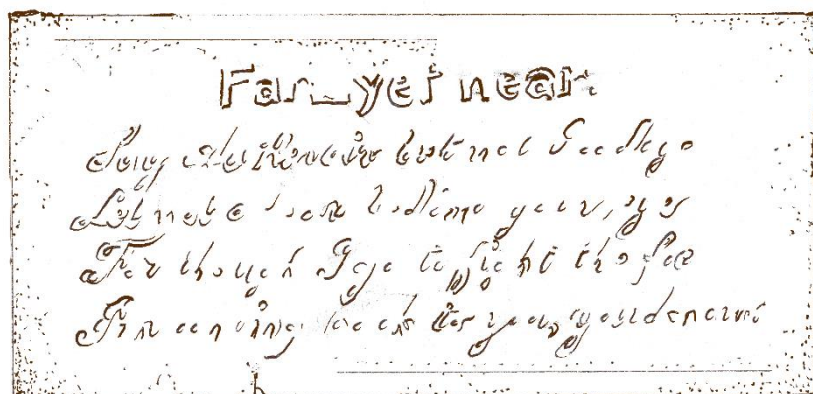 Far_yet near.
Say Au Revoir but not Goodbye
Let not a tear bedim your eyes
For though I go to fight the foe
I'm coming back to you, you know